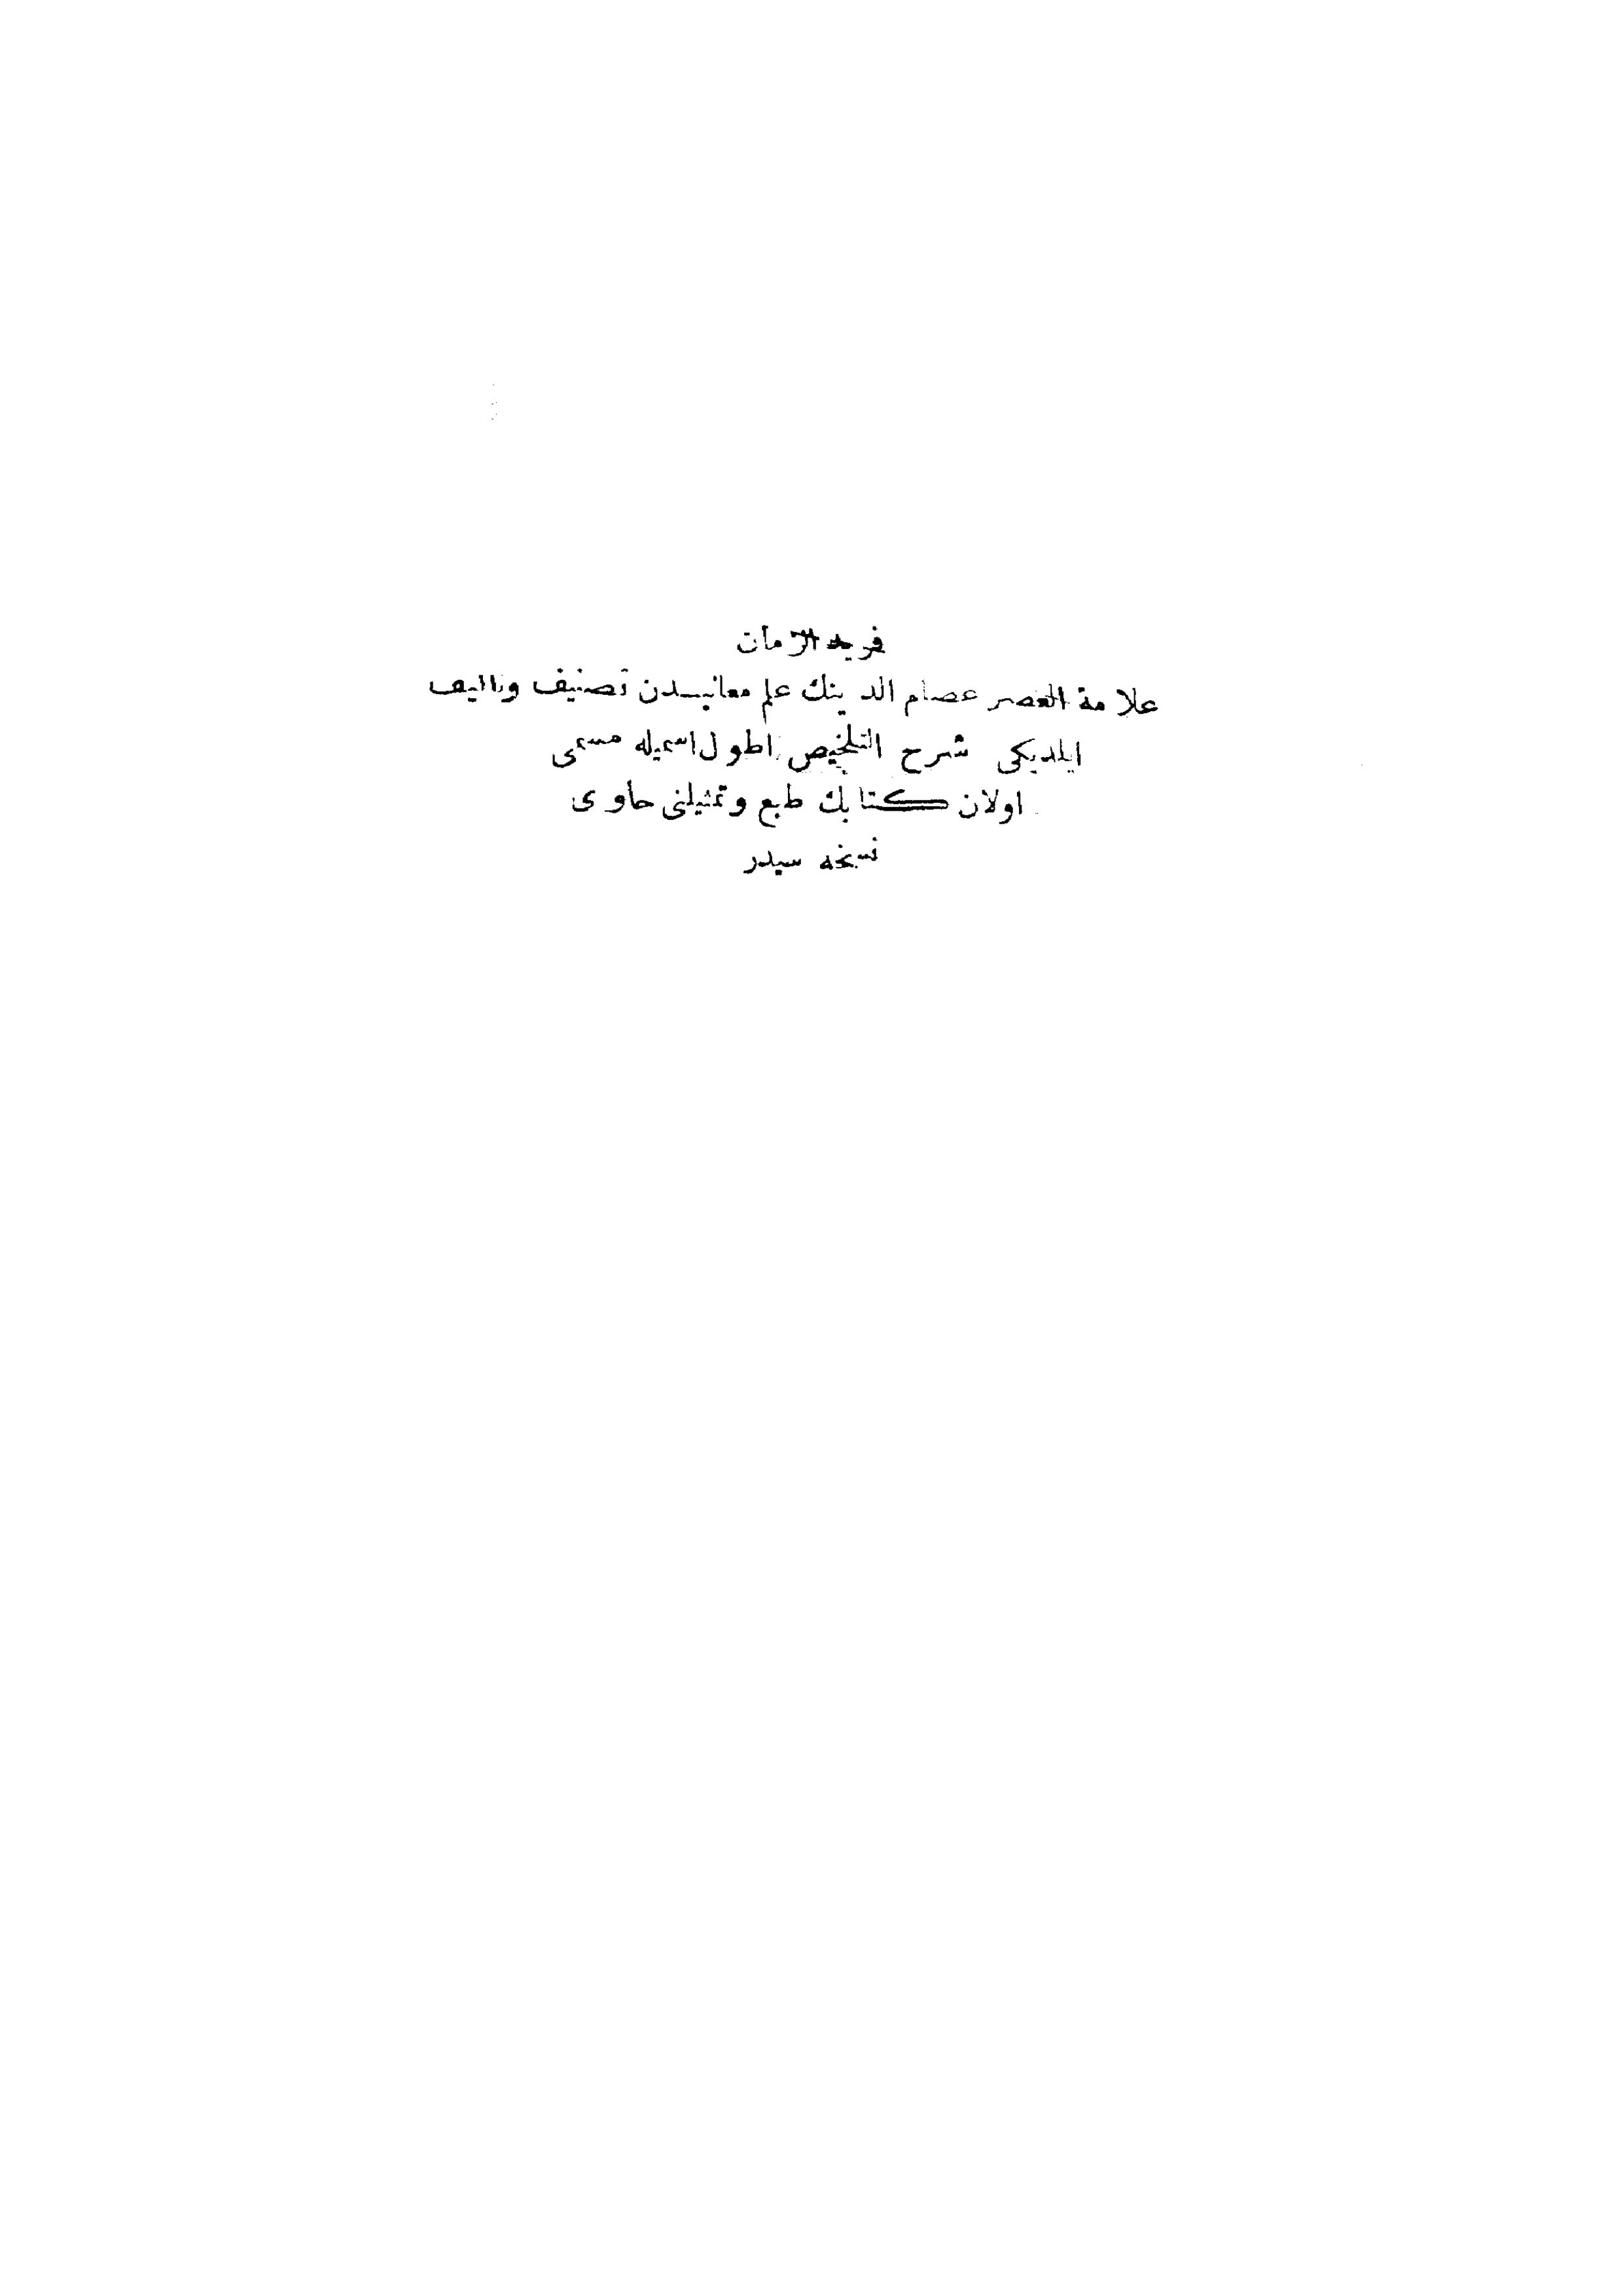 فريد الزمان
علامة العصر عصام الدينك علم معانيسدن تصنيف وتاليف
ايلديكى شرح التلخيص اطول اسميله مسمى
اولان كتابك طبع وتمثيلنى حاوى
نسخه سيدر